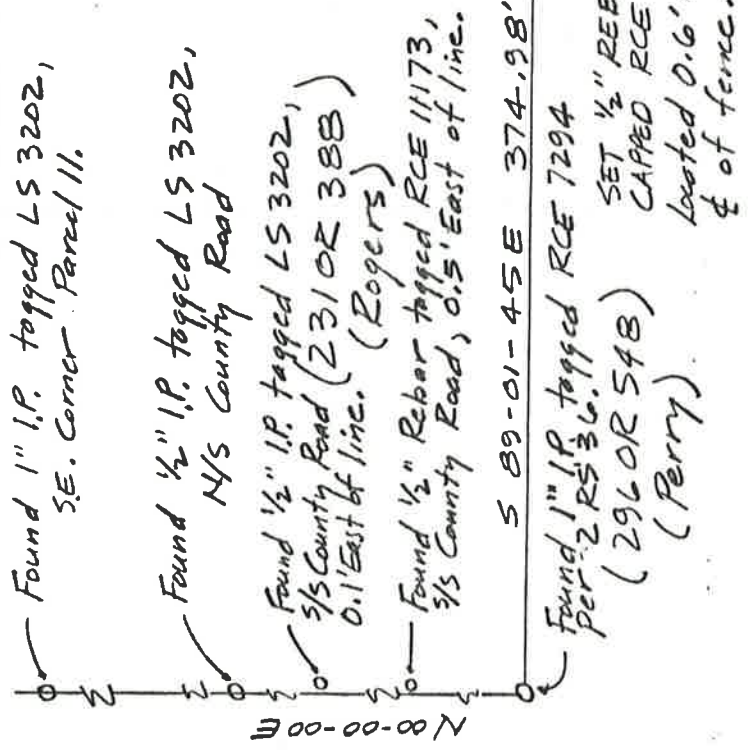 Found 1" I.P. tagged LS 3202,
S.E. Corner Parcel 11.
Found 1/2" I.P. tagged LS 3202,
N/S County Road
Found 1/2" I.P. tagged LS 3202,
S/S County Road (231 OR 388)
0.1' East of line. (Rogers)
Found 1/2" Rebar tagged RCE 11173,
S/S County Road, 0.5' East of line.
S 89-01-45 E 374.98'
N 00-00-00 E
Found 1" I.P. tagged RCE 7294
per 2 RS 36.
(296 OR 548)
(Perry)
SET 1/2" REB
CAPPED RCE
Located 0.6'
℄ of fence.